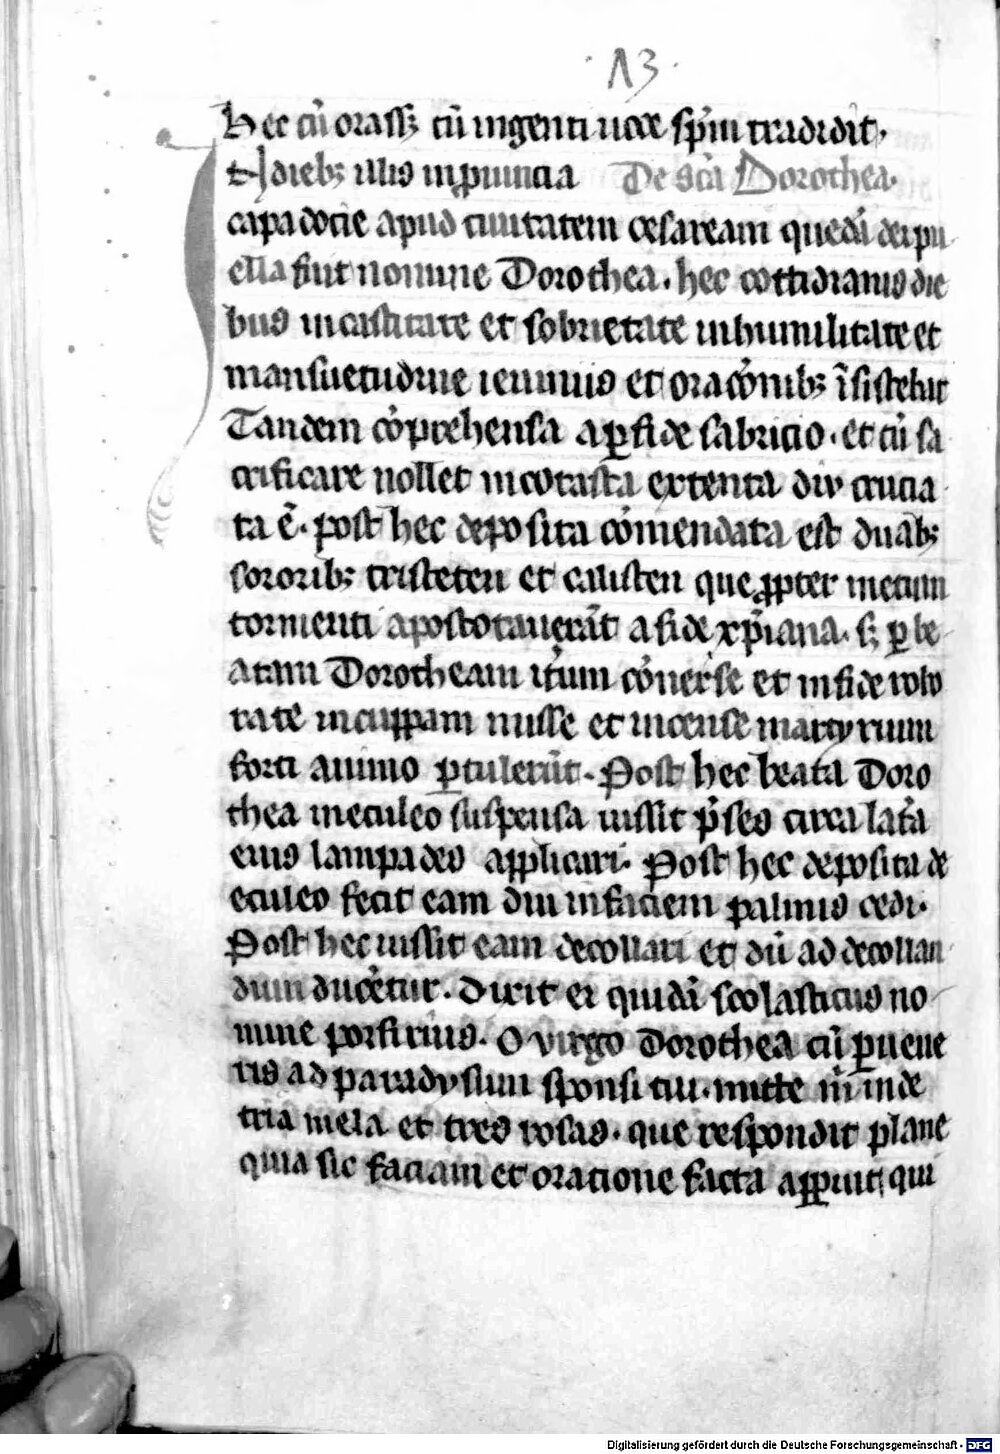 ·13·
Hec cū orass; cū ingenti uoce sp̄m tradidit.
In dieb; illis in ꝓuincia De sc̄a Dorothea.
capadocie apud ciuitatem cesaream quedā dei pu
ella fuit nomine Dorothea. hec cottidianis die
bus in castitate et sobrietate in humilitate et
mansuetudine ieiuniis et oracōnib; īsistebat
Tandem cōprehensa a ꝑfide fabricio. et cū sa
crificare nollet in cotasta extenta diu crucia
ta ē. post hec deposita cōmendata est duab;
sororib; tristeten et calisten que ꝓpter metum
tormenti apostotauerāt a fide xp̄iana. s; ꝑ be
atam Dorotheam it̄um cōuerse et in fide robo
rate in cuppam misse et incense martyrium
forti animo ꝑtulerūt. Post hec beata Doro
thea in eculeo suspensa iussit p̄ses circa lat̄a
eius lampades applicari. Post hec deposita de
eculeo fecit eam diu in faciem palmis cedi.
Post hec iussit eam decollari et dū ad decollan
dum ducēetur. Dixit ei quidā scolasticus no
mine porfirius. O virgo Dorothea cū ꝑuene
ris ad paradysum sponsi tui. mitte m̄ inde
tria mela et tres rosas. que respondit plane
quia sic faciam et oratione facta apparuit qui
Digitalisierung gefördert durch die Deutsche Forschungsgemeinschaft - DFG